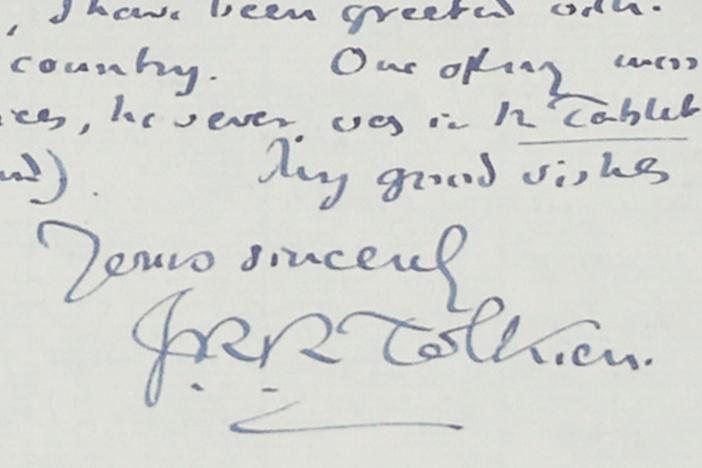 , I have been greeted with.
country. One of my
, however was in the Tablet
). My good wishes
Yours sincerely
J.R.R Tolkien.